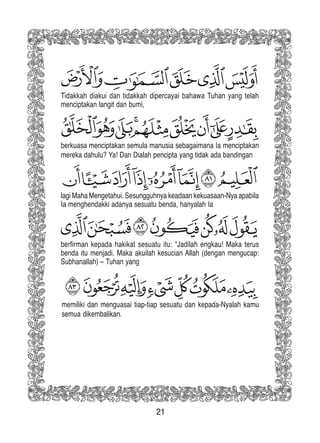 أَوَلَيْسَ ٱلَّذِى خَلَقَ ٱلسَّمَٰوَٰتِ وَٱلْأَرْضَ
Tidakkah diakui dan tidakkah dipercayai bahawa Tuhan yang telah
menciptakan langit dan bumi,
بِقَٰدِرٍ عَلَىٰٓ أَن يَخْلُقَ مِثْلَهُم ۚ بَلَىٰ وَهُوَ ٱلْخَلَّٰقُ
berkuasa menciptakan semula manusia sebagaimana Ia menciptakan
mereka dahulu? Ya! Dan Dialah pencipta yang tidak ada bandingan
ٱلْعَلِيمُ ﴿٨١﴾ إِنَّمَآ أَمْرُهُۥٓ إِذَآ أَرَادَ شَيْـًٔا أَن
lagi Maha Mengetahui. Sesungguhnya keadaan kekuasaan-Nya apabila
Ia menghendakki adanya sesuatu benda, hanyalah Ia
يَقُولَ لَهُۥ كُن فَيَكُونُ ﴿٨٢﴾ فَسُبْحَٰنَ ٱلَّذِى
berfirman kepada hakikat sesuatu itu: "Jadilah engkau! Maka terus
benda itu menjadi. Maka akuilah kesucian Allah (dengan mengucap:
Subhanallah) – Tuhan yang
بِيَدِهِۦ مَلَكُوتُ كُلِّ شَىْءٍ وَإِلَيْهِ تُرْجَعُونَ ﴿٨٣﴾
memiliki dan menguasai tiap-tiap sesuatu dan kepada-Nyalah kamu
semua dikembalikan.
21